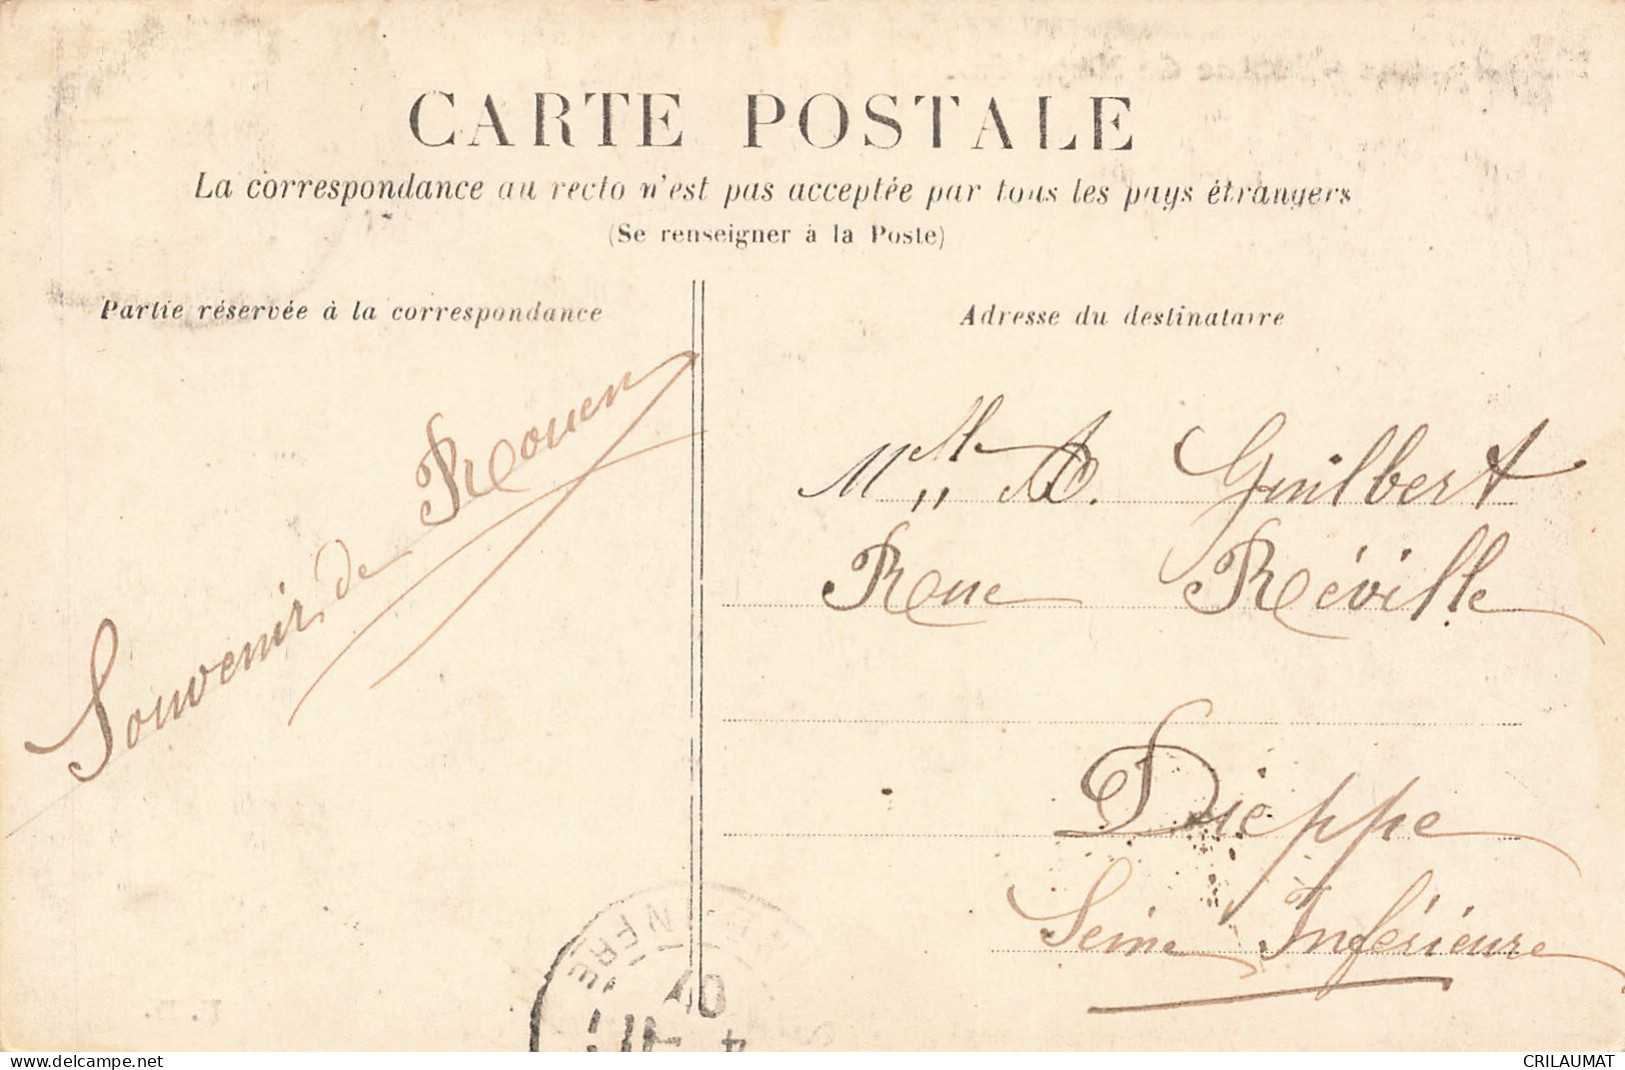 CARTE POSTALE
La correspondance au recto n'est pas acceptée par tous les pays étrangers
(Se renseigner à la Poste)
Partie réservée à la correspondance
Adresse du destinataire
Souvenir de Rouen
Mlle A. Guilbert
Rue Réville
Dieppe
Seine Inférieure
INFRE
07
website : delcampe.net
CRILAUMAT